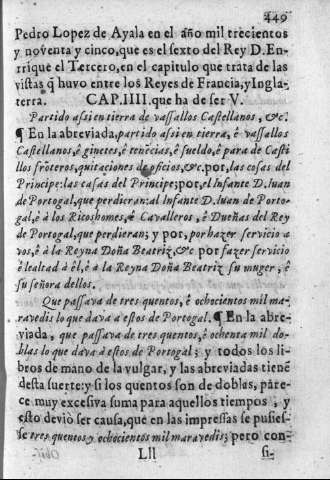 449
Pedro Lopez de Ayala en el año mil trecientos
y noventa y cinco, que es el sexto del Rey D. En-
rique el Tercero, en el capitulo que trata de las
vistas q̃ huvo entre los Reyes de Francia, y Ingla-
terra. CAP. IIII. que ha de ser V.
Partido assi en tierra de vassallos Castellanos, &c.
¶ En la abreviada, partido assi en tierra, è vassallos
Castellanos, è ginetes, è tenẽcias, è sueldo, è para de Casti
llos frõteros, quitaciones de oficios, &c. por, las cosas del
Principe: las casas del Principe; por, el Infante D. Iuan
de Portogal, que perdieran: al Infante D. Iuan de Porto-
gal, è à los Ricoshomes, è Cavalleros, è Dueñas del Rey
de Portogal, que perdieran; y por, por hazer servicio a
vos, è à la Reyna Doña Beatriz, &c por fazer servicio
è lealtad à èl, è à la Reyna Doña Beatriz su muger, è
su señora dellos.
Que passava de tres quentos, è ochocientos mil ma-
ravedis lo que dava à estos de Portogal. ¶ En la abre-
viada, que passava de tres quentos, è ochenta mil do-
blas lo que dava à estos de Portogal; y todos los li-
bros de mano de la vulgar, y las abreviadas tienẽ
desta suerte: y si los quentos son de doblas, pare-
ce muy excesiva suma para aquellos tiempos, y
esto deviò ser causa, que en las impressas se pusies-
se tres quentos y ochocientos mil maravedis; pero con-
Lll
si-